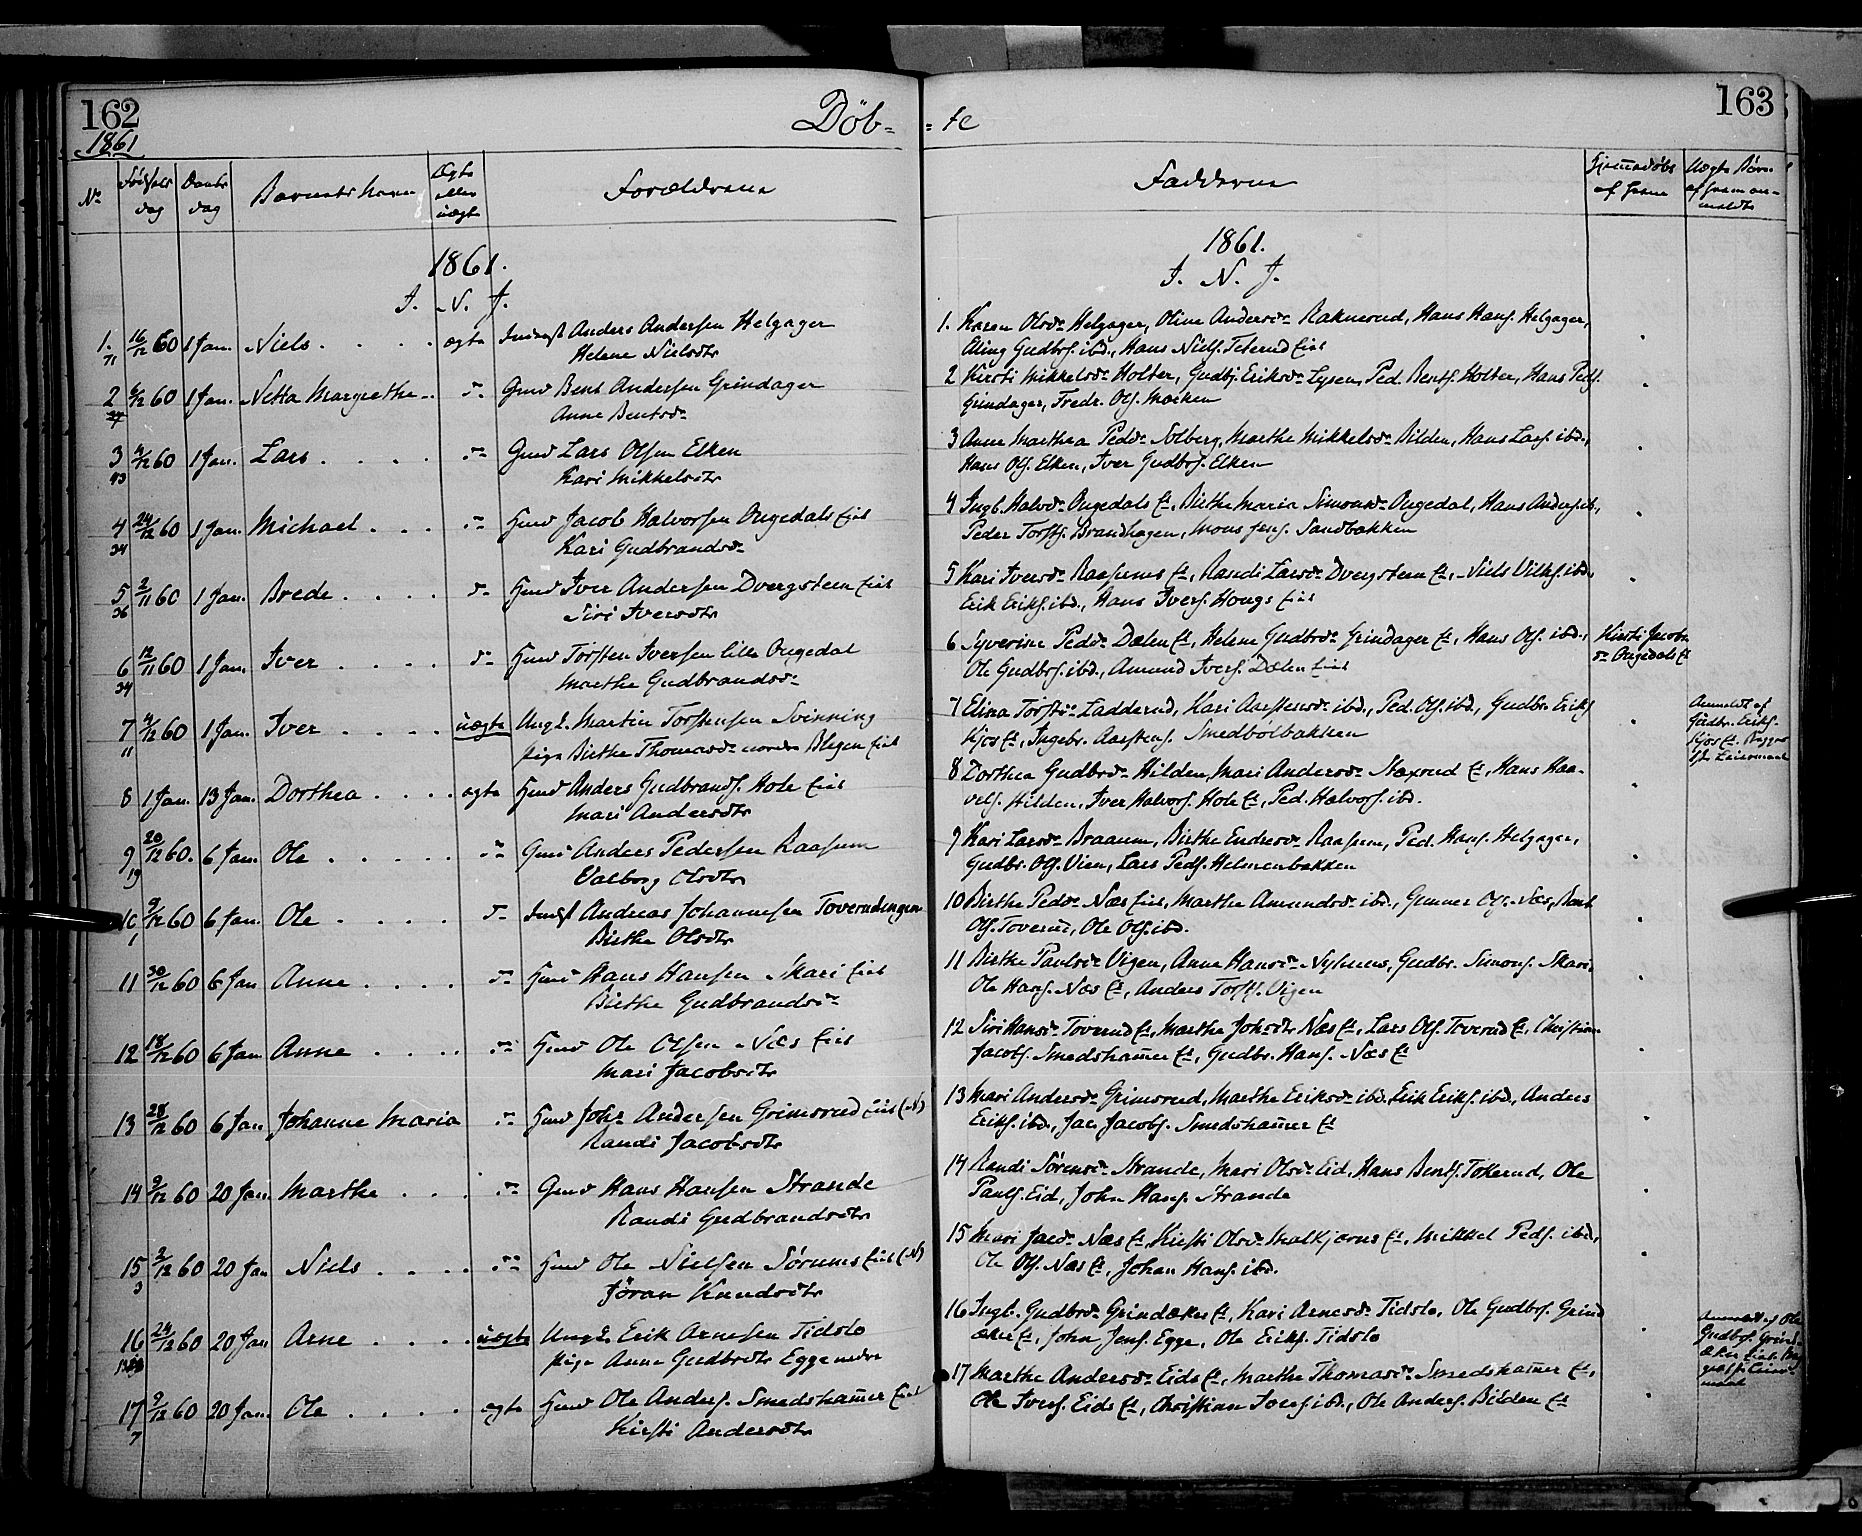 162
1861
Døb-
№ Fødsels dag Daabs dag Barnets Navn Ægte eller uægte Forældrene
1861.
J. N. J.
1. 16/12 60 1 Jan. Niels . . . . ægte Inderst Anders Andersen Helgager
71 Helene Nielsdtr
2 6/12 60 1 Jan. Netta Margrethe . . d⁰ Gmd Bent Andersen Grindager
Anne Bentsd⁰
3 4/12 60 1 Jan. Lars . . . . d⁰ Gmd Lars Olsen Elken
93 Kari Mikkelsdtr
4 24/12 60 1 Jan. Michael . . . d⁰ Hmd Jacob Halvorsen Ougedals Eie
34 Kari Gudbrandsd⁰
5 2/11 60 1 Jan. Brede . . . . d⁰ Hmd Iver Andersen Dvergsteen Eie
36 Siri Iversdtr
6 12/11 60 1 Jan. Iver . . . . d⁰ Hmd Torsten Iversen lille Ougedal
34 Marthe Gudbrandsd⁰
7 4/12 60 1 Jan. Iver . . . . uægte Ungk. Martin Torstensen Svinning
11 Pige Birthe Thomasd⁰ nordre Blegen Eie
8 1 Jan. 13 Jan. Dorthea . . . . ægte Hmd Anders Gudbrands. Hole Eie
Mari Andersdtr
9 20/12 60. 6 Jan. Ole . . . . . d⁰ Gmd Anders Pedersen Raasum
19 Valborg Olsdtr
10 9/12 60 6 Jan. Ole . . . . d⁰ Inderst Andreas Johannesen Toverudengen
1 Birthe Olsdtr
11 30/12 60 6 Jan Anne . . . . d⁰ Hmd Hans Hansen Skari Eie
Birthe Gudbrandsd⁰
12 18/12 60 6 Jan Anne . . . . d⁰ Hmd Ole Olsen Næs Eie
Mari Jacobsdtr
13 28/12 60 6 Jan Johanne Maria d⁰ Hmd Johs Andersen Grimsrud Eie (N)
Randi Jacobsdtr
14 9/12 60 20 Jan. Marthe . . . d⁰ Gmd Hans Hansen Strande
Randi Gudbrandsdtr
15 2/12 60 20 Jan Niels . . . . d⁰ Hmd Ole Nielsen Sørums Eie (N)
3 Jöran Knudsdtr
16 24/12 60 20 Jan Arne . . . . uægte Ungk. Erik Arnesen Tidslo
Pige Anne Gudbrdtr Egge nedre
17 9/12 60 20 Jan. Ole . . . . ægte Hmd Ole Anders. Smedshammer Eie
7 Kirsti Andersdtr
163
-te
Fadderne Hjemmedøbt af hvem Uægte Børn af hvem anmeldte
1861.
J. N. J.
1. Karen Olsd⁰ Helgager, Oline Andersd⁰ Raknerud, Hans Hans. Helgager,
Eling Gudbrs. ibd., Hans Niels. Teterud Eie
2 Kirsti Mikkelsd⁰ Holter, Gudbj. Eriksd⁰ Lysen, Ped. Bents. Holter, Hans Peds.
Grindager, Fredr. Ols. Morken
3 Anne Marthea Pedd⁰ Solberg, Marthe Mikkelsd⁰ Bilden, Hans Lars. ibd.,
Hans Ols. Elken, Iver Gudbrs. Elken
4 Ingb. Halvd⁰ Ougedals E., Birthe Maria Simonsd⁰ Ougedal, Hans Anders. ib.,
Peder Torsts. Brandhagen, Mons Jens. Sandbakken
5 Kari Iversd⁰ Raasums E., Randi Larsd⁰ Dvergsteen E., Niels Vilhs. ibd.,
Erik Eriks. ibd., Hans Ivers. Hougs Eie
6 Syverine Pedd⁰ Dælen E., Helene Gudbrd⁰ Grindager E., Hans Ols. ibd., Kirsti Jacobs-
Ole Gudbrs. ibd., Amund Ivers. Dælen Eie d⁰ Ougedals E.
7 Elina Torstd⁰ Ladderud, Kari Aarstensd⁰ ibd., Ped. Ols. ibd., Gudbr. Eriks. Anmeldt af
Kjos E., Ingebr. Aarstens. Smedbölbakken Gudbr. Eriks. Kjos E.
8 Dorthea Gudbrd⁰ Hilden, Mari Andersd⁰ Næxrud E., Hans Haa-
vels. Hilden, Iver Halvors. Hole E., Ped. Halvors. ibd.
9 Kari Larsd⁰ Braanum, Birthe Endersd⁰ Raasum, Ped. Hans. Helgager,
Gudbr. Ols. Vien, Lars Peds. Helmenbakken
10 Birthe Pedd⁰ Næs Eie, Marthe Amundsd⁰ ibd., Gunner Ols. Næs, Bent
Ols. Toverud, Ole Ols. ibd.
11 Birthe Paulsd⁰ Vigen, Anne Hansd⁰ Nyhuus, Gudbr. Simons. Skari,
Ole Hans. Næs E., Anders Torsts. Vigen
12 Siri Hansd⁰ Toverud E., Marthe Johsdtr Næs E., Lars Ols. Toverud E., Christian
Jacobs. Smedshammer E., Gudbr. Hans. Næs E.
13 Mari Andersd⁰ Grimsrud, Marthe Eriksd⁰ ibd. Erik Eriks. ibd., Anders
Eriks. ibd., Jac. Jacobs. Smedshammer E.
14 Randi Sörensd⁰ Strande, Mari Olsd⁰ Eid, Hans Bents. Tokerud, Ole
Pauls. Eid, John Hans. Strande
15 Mari Jacd⁰ Næs E., Kirsti Olsd⁰ Molkjerns E., Mikkel Peds. ibd.,
Ole Ols. Næs E., Johan Hans. ibd.
16 Ingb. Gudbrd⁰ Grindaker E., Kari Arnesd⁰ Tidslo, Ole Gudbrs. Grind- Anmeldt af Ole
aker E., John Jens. Egge, Ole Eriks. Tidslo Gudbrs. Grindaker Eie.
17 Marthe Andersd⁰ Eids E., Marthe Thomasd⁰ Smedshammer E.,
Ole Ivers. Eids E., Christian Ivers. ibd., Ole Anders. Bilden E.